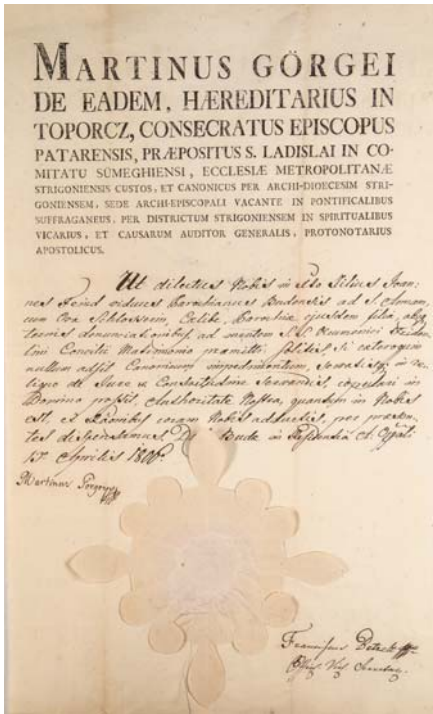 MARTINUS GÖRGEI
DE EADEM, HÆREDITARIUS IN
TOPORCZ, CONSECRATUS EPISCOPUS
PATARENSIS, PRÆPOSITUS S. LADISLAI IN CO-
MITATU SÜMEGHIENSI, ECCLESIÆ METROPOLITANÆ
STRIGONIENSIS CUSTOS, ET CANONICUS PER ARCHI-DIOECESIM STRI-
GONIENSEM, SEDE ARCHI-EPISCOPALI VACANTE IN PONTIFICALIBUS
SUFFRAGANEUS, PER DISTRICTUM STRIGONIENSEM IN SPIRITUALIBUS
VICARIUS, ET CAUSARUM AUDITOR GENERALIS, PROTONOTARIUS
APOSTOLICUS.
Ut dilectus Nobis in Filius Joan-
nes viduus Budensis ad S. Annam,
cum Eva Schlosserin, Celibe, ejusdem filia, absq
denunciationibus, ad mentem S.S. Oecumenici Triden-
tini Concilii Matrimonio praemitti solitis, si caeteroquin
nullum adsit Canonicum impedimentum, servatisq in re-
liquo de Jure et Consvetudine servandis, copulari in
Domino possit, Authoritate Nostra, quantum in Nobis
est, ex rationibus coram Nobis adductis, per praesen-
tes dispensamus. Budae in Residentia
17 Aprilis 1800
Martinus
Franciscus